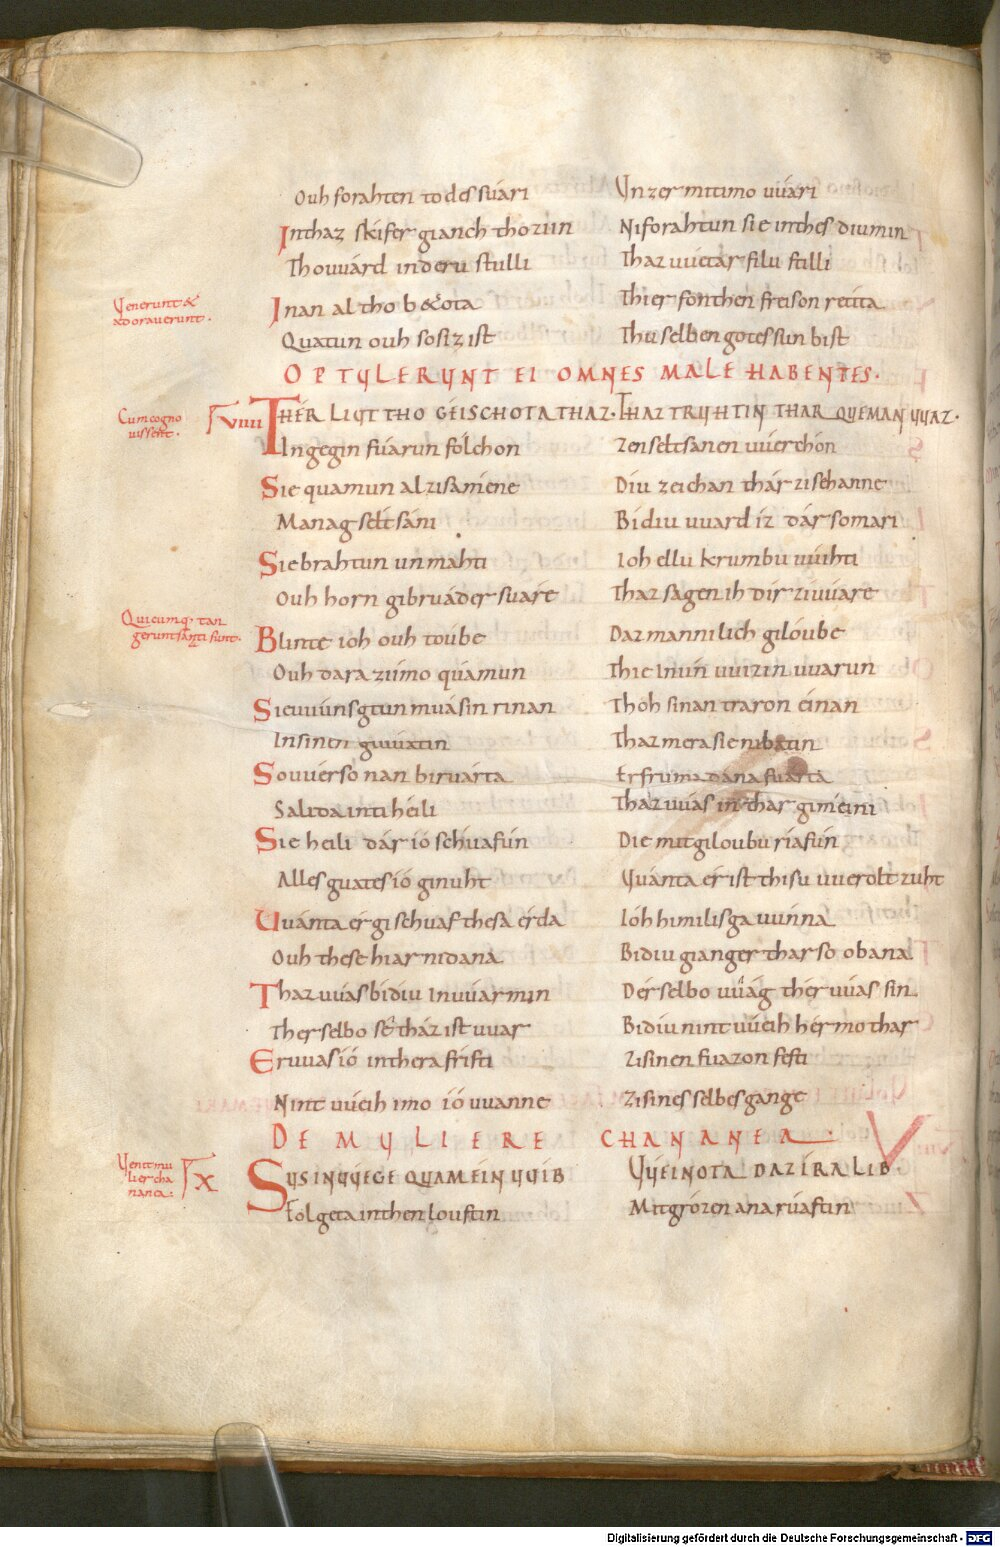 Ouh forahten todes suári Unzer mittimo uuári
Inthaz skéifer gianch thoziin Niforahtun sie inthes diu min
Thouuárd inderu stulli Thaz uuéttar filu stilli
Uenerunt &
adorauerunt.
Inan al tho b&ota Thier fon then freison retita
Quatun ouh sosiz ist Thu selben gotes sun bist
OPTULERUNT EI OMNES MALE HABENTES.
Cum cogno
uissent.
VIIII
THÉR LIUT THO GÉISCHOTA THAZ. THAZ TRUHTIN THAR QUEMAN UUAZ.
Ingegin fúarun fólchon zen seltsanen uuérchón
Sie quamun al zisaméne Diu zeichan thár zisehanne
Manag seltsáni Bidiu uuard iz dár so mari
Sie brahtun unmahti Ioh ellu krumbu uuihti
Ouh horn gibruáder suáre Thaz sagen ih dír ziuuáre
Quicumq; tan
gerunt sanati sunt.
Blinte ioh ouh toube Daz mannilich gilóube
Ouh dara ziimo quámun Thie Inuń uuizin uuarun
Sie uuúnsgtun muásin rinan Thóh sinan traron éinan
In sinen giuuátin Thaz mera sie nibatin
So uuér so nan biruárta Er fruma dána fuarta
Salida inti héili Thaz uuás in thar giméini
Sie heili dár ió schuafún Die mit giloubu ríafún
Alles guates ió ginuht Uuánta ér ist thisu uuerolt zuht
Uuánta ér gischuaf thesa érda Ióh himilisga uuúnna
Ouh these hiar nidana Bidiu gianger thar so obana
Thaz uuás bidiu In uuar min Dér selbo uuág thér uuás sin
Ther selbo sé tház ist uuar Bidiu nint uuéih hér mo thar
Er uuas ió in thera fristi Zi sinen fuazon festi
Nint uuéih imo ió uuanne Zi sines selbes gange
DE MULIERE CHANANEA
Uenit mu
lier cha
nanea:
X
SUS IN UUÉGE QUAM EIN UUIB UUEINOTA DAZ ÍRA LIB
Folgeta in then louftin Mit grózen anarúaftin
Digitalisierung gefördert durch die Deutsche Forschungsgemeinschaft - DFG